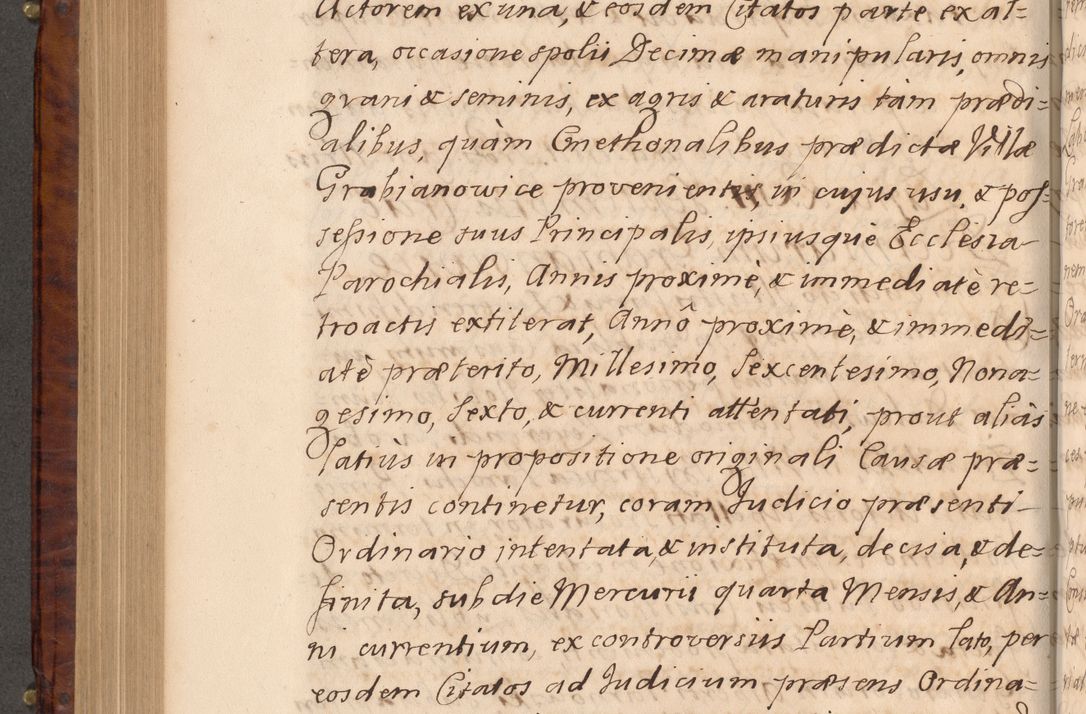 Actorem ex una, & eosdem Citatos parte ex al=
tera, occasione spolii, Decimæ manipularis, omnis
grani & seminis, ex agris & araturis tàm prædi=
alibus, quàm Cmethonalibus prædictæ Villæ
Grabianowice provenientis, in cujus usu, & pos=
sessione suus Principalis, ipsiusque Ecclesia
Parochialis, Annis proximè, & immediatè re=
troactis extiterat, Annô proximè, & immedi=
atè præterito, Millesimo, Sexcentesimo, Nona=
gesimo, Sexto, & currenti attentati, prout aliàs
latiùs in propositione originali Causæ præ=
sentis continetur, coram Judicio præsenti
Ordinario intentata, & instituta, decisa, & de=
finita, sub die Mercurii quarta Mensis, & An=
ni currentium, ex controversiis Partium lato, per
eosdem Citatos ad Judicium præsens Ordina=